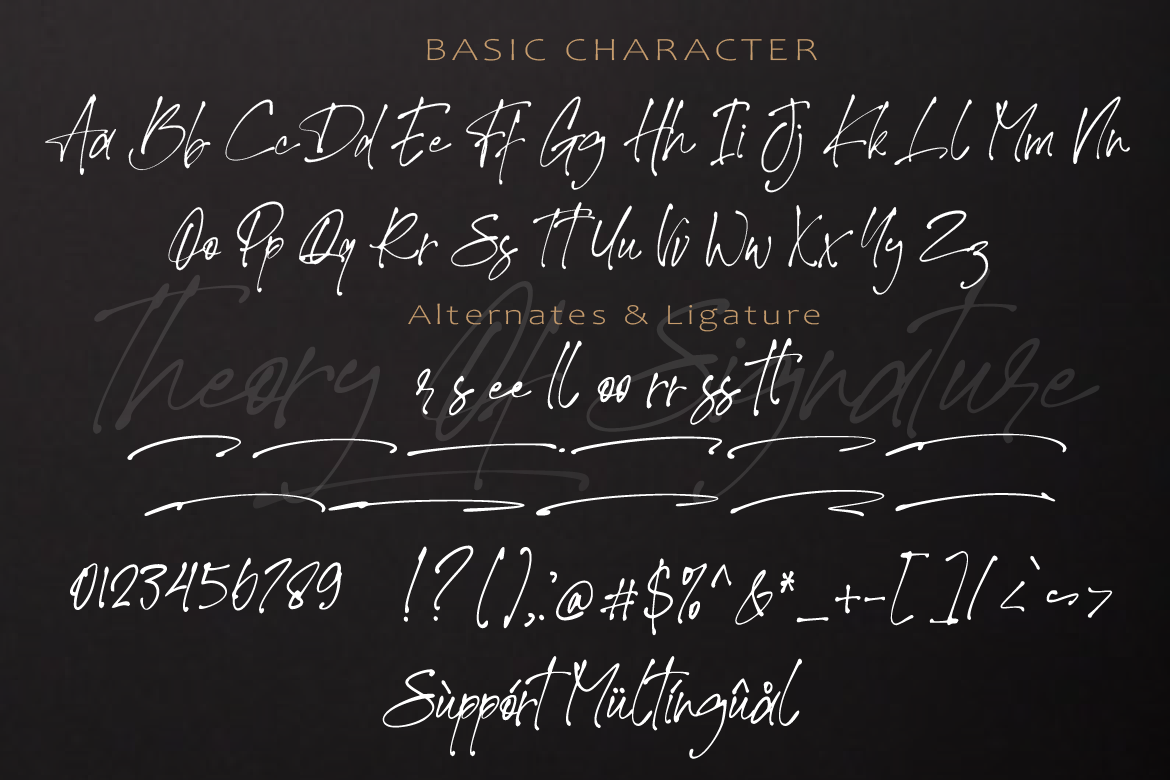 BASIC CHARACTER
Aa Bb Cc Dd Ee Ff Gg Hh Ii Jj Kk Ll Mm Nn
Oo Pp Qq Rr Ss Tt Uu Vv Ww Xx Yy Zz
Alternates & Ligature
Theory Of Signature
r s ee ll oo rr ss tt
0123456789 !?(),.'@#$%^&*_+-[]/<`~>
Sùppórt Mültíngûål